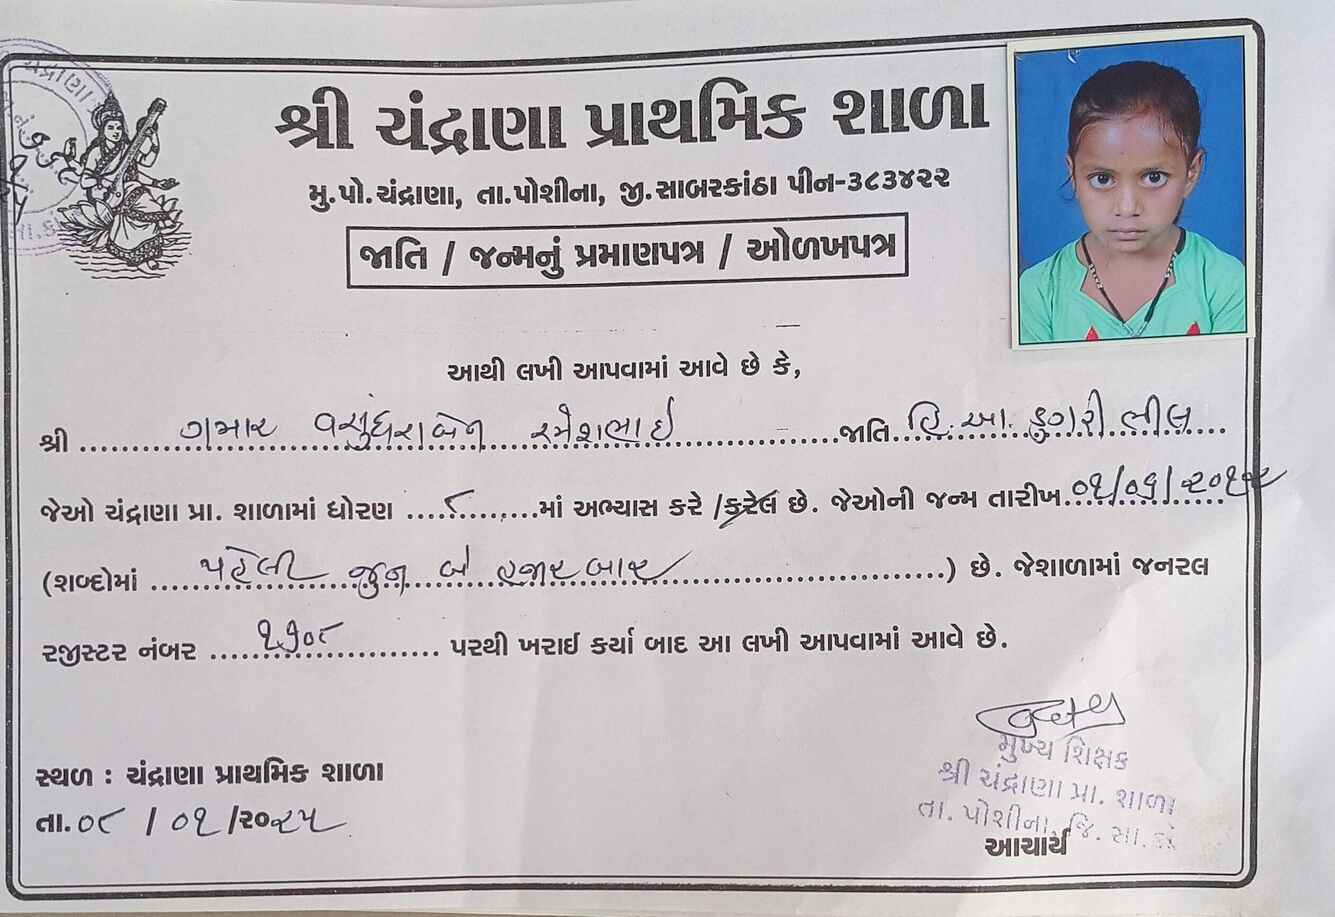 શ્રી ચંદ્રાણા પ્રાથમિક શાળા
મુ.પો.ચંદ્રાણા, તા.પોશીના, જી.સાબરકાંઠા પીન-૩૮૩૪૨૨
જાતિ / જન્મનું પ્રમાણપત્ર / ઓળખપત્ર
આથી લખી આપવામાં આવે છે કે,
શ્રી ગમાર વસુંધરાબેન રમેશભાઇ જાતિ હિ.આ. ડુંગરી ભીલ
જેઓ ચંદ્રાણા પ્રા. શાળામાં ધોરણ ૮ માં અભ્યાસ કરે /કરેલ છે. જેઓની જન્મ તારીખ ૦૧/૦૬/૨૦૧૨
(શબ્દોમાં પહેલી જુન બે હજાર બાર) છે. જેશાળામાં જનરલ
રજીસ્ટર નંબર ૧૭૦૮ પરથી ખરાઈ કર્યા બાદ આ લખી આપવામાં આવે છે.
સ્થળ : ચંદ્રાણા પ્રાથમિક શાળા
તા.૦૮ / ૦૧ /૨૦૨૫
મુખ્ય શિક્ષક
શ્રી ચંદ્રાણા પ્રા. શાળા
તા. પોશીના, જિ. સા.કાં
આચાર્ય